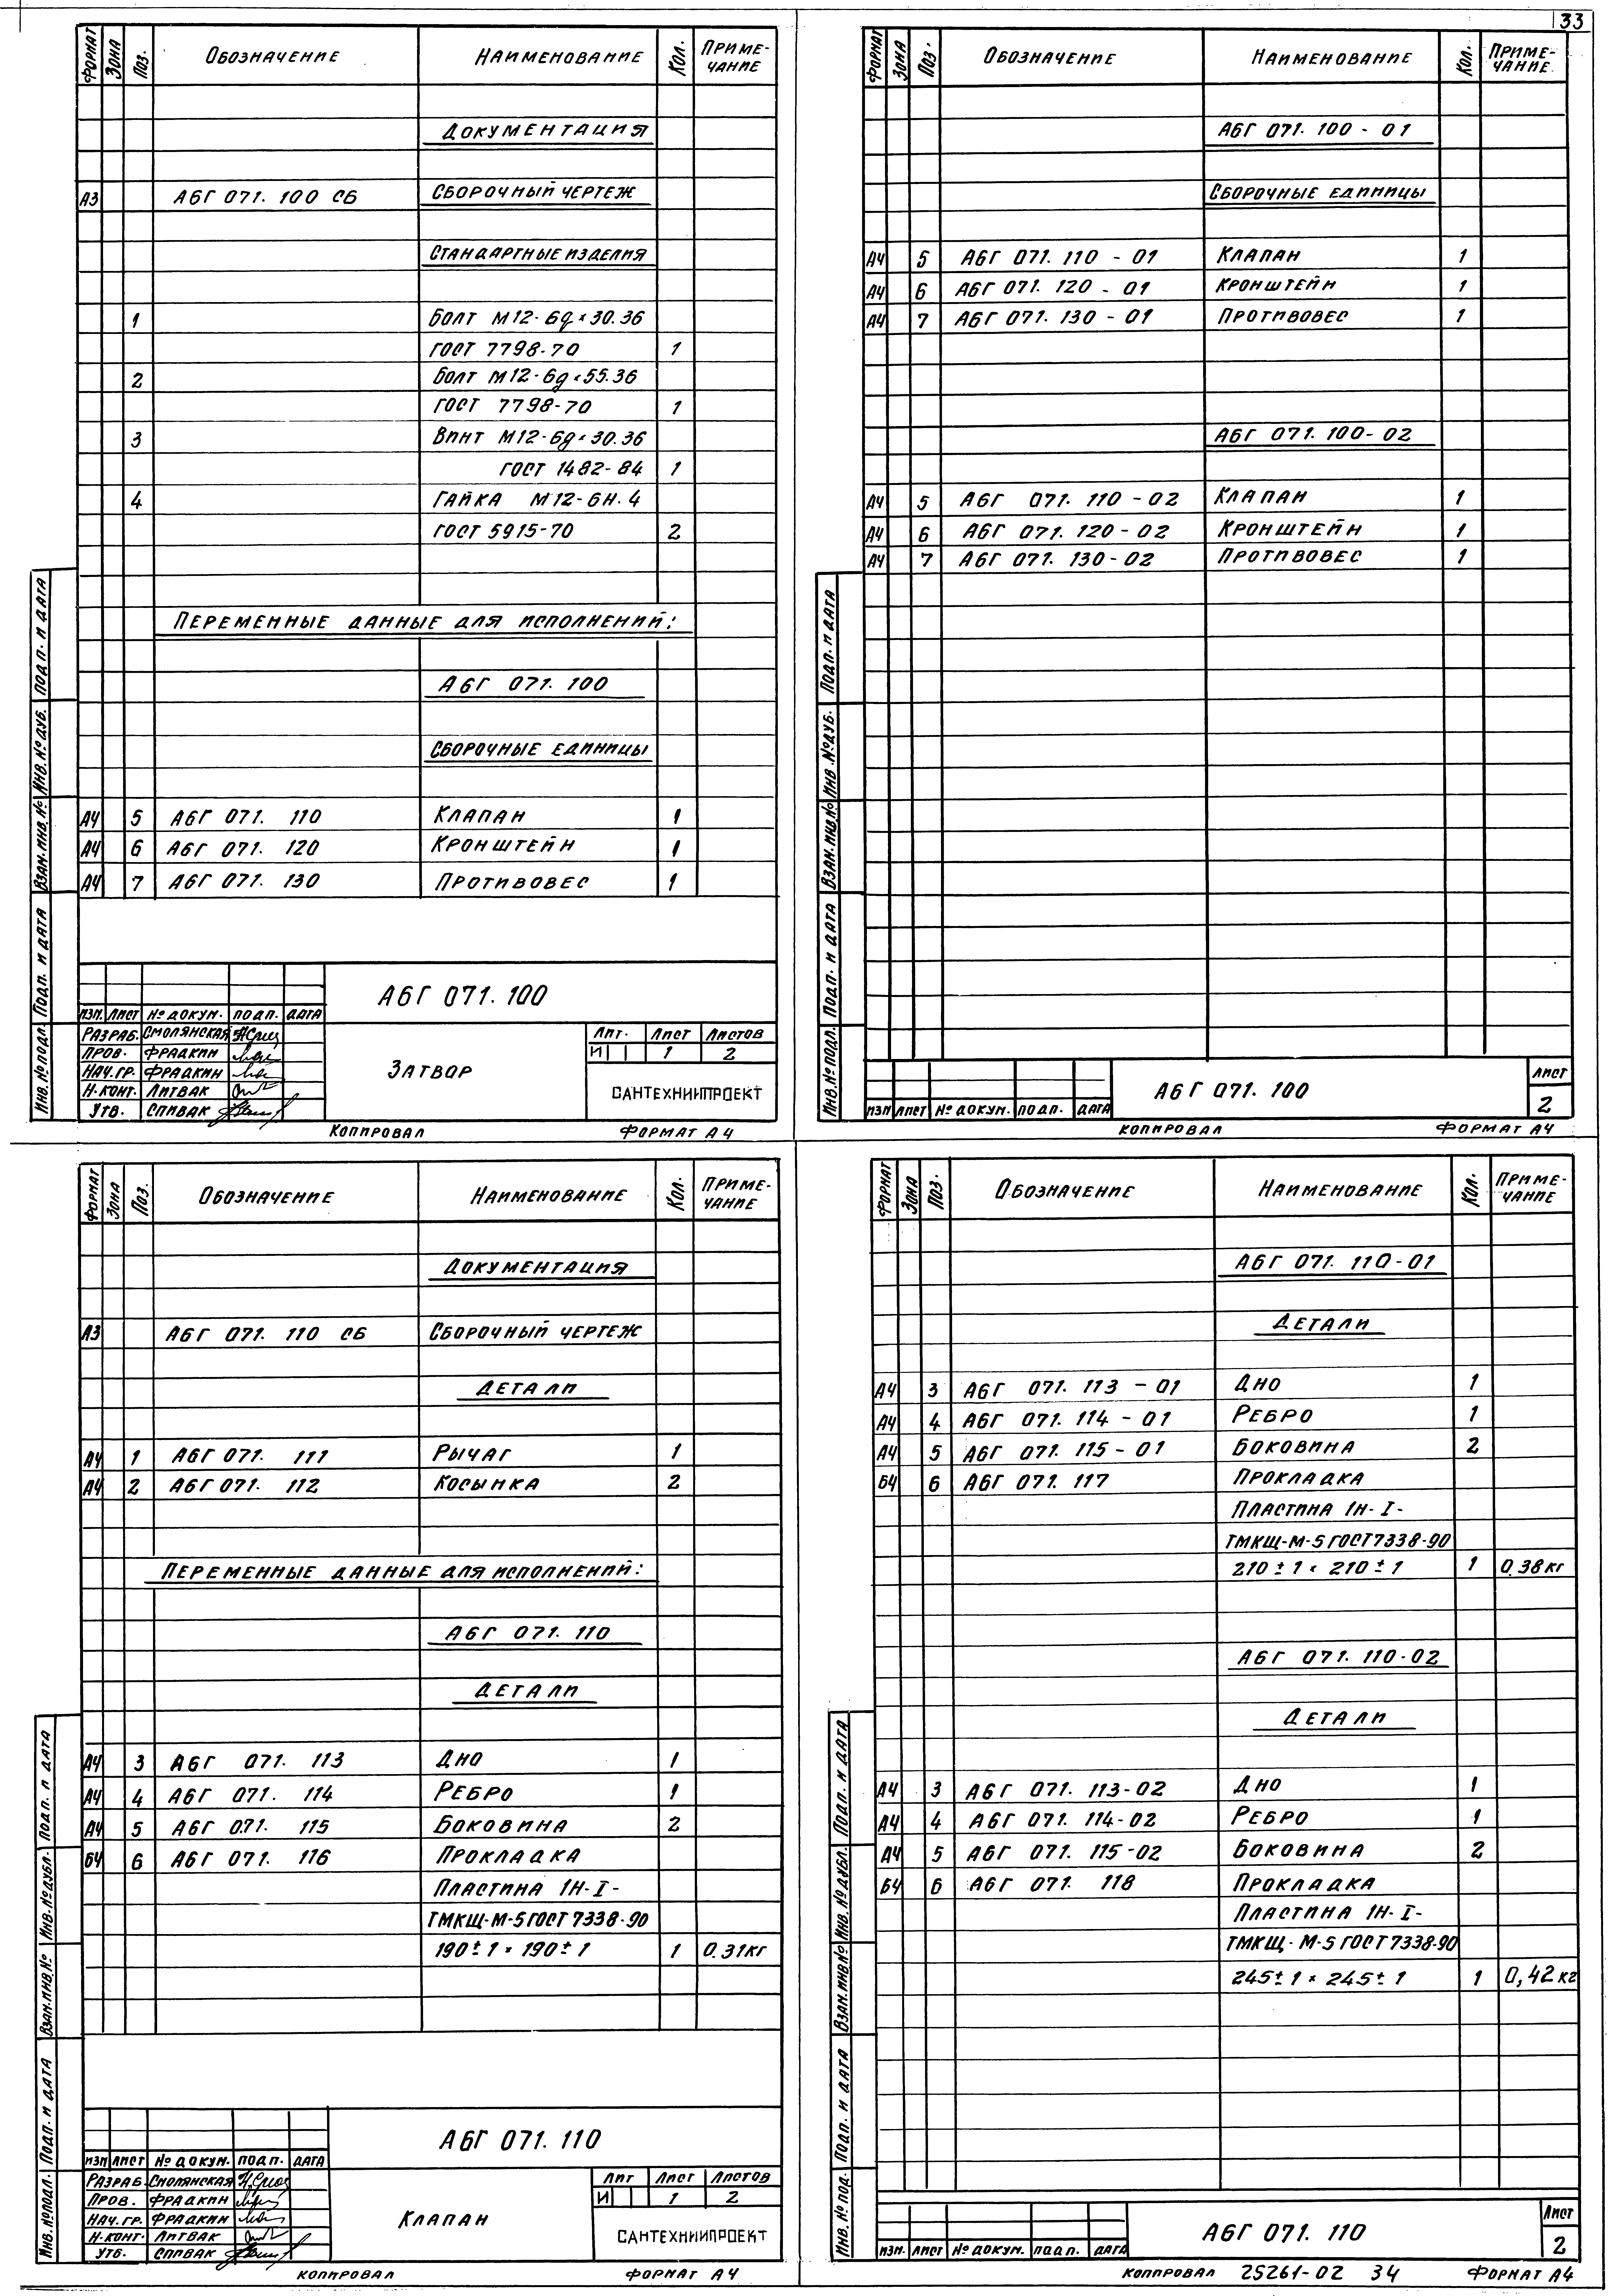 33
ФОРМАТ ЗОНА ПОЗ. ОБОЗНАЧЕНИЕ НАИМЕНОВАНИЕ КОЛ. ПРИМЕ-
ЧАНИЕ
ДОКУМЕНТАЦИЯ
А3 А6Г 071. 100 СБ СБОРОЧНЫЙ ЧЕРТЕЖ
СТАНДАРТНЫЕ ИЗДЕЛИЯ
1 БОЛТ М12-6g×30.36
ГОСТ 7798-70 1
2 БОЛТ М12-6g×55.36
ГОСТ 7798-70 1
3 ВИНТ М12-6g×30.36
ГОСТ 1482-84 1
4 ГАЙКА М12-6Н.4
ГОСТ 5915-70 2
ПЕРЕМЕННЫЕ ДАННЫЕ ДЛЯ ИСПОЛНЕНИЙ:
А6Г 071. 100
СБОРОЧНЫЕ ЕДИНИЦЫ
А4 5 А6Г 071. 110 КЛАПАН 1
А4 6 А6Г 071. 120 КРОНШТЕЙН 1
А4 7 А6Г 071. 130 ПРОТИВОВЕС 1
ИНВ.№ПОДЛ. ПОДП. И ДАТА ВЗАМ.ИНВ.№ ИНВ.№ДУБ. ПОДП. И ДАТА
А6Г 071.100
ИЗМ. ЛИСТ № ДОКУМ. ПОДП. ДАТА
РАЗРАБ. СМОЛЯНСКАЯ
ПРОВ. ФРАДКИН
НАЧ.ГР. ФРАДКИН
Н.КОНТ. ЛИТВАК
УТВ. СПИВАК
ЗАТВОР
ЛИТ. ЛИСТ ЛИСТОВ
И 1 2
САНТЕХНИИПРОЕКТ
КОПИРОВАЛ ФОРМАТ А4
ФОРМАТ ЗОНА ПОЗ. ОБОЗНАЧЕНИЕ НАИМЕНОВАНИЕ КОЛ. ПРИМЕ-
ЧАНИЕ.
А6Г 071. 100 - 01
СБОРОЧНЫЕ ЕДИНИЦЫ
А4 5 А6Г 071. 110 - 01 КЛАПАН 1
А4 6 А6Г 071. 120 - 01 КРОНШТЕЙН 1
А4 7 А6Г 071. 130 - 01 ПРОТИВОВЕС 1
А6Г 071. 100-02
А4 5 А6Г 071. 110 - 02 КЛАПАН 1
А4 6 А6Г 071. 120-02 КРОНШТЕЙН 1
А4 7 А6Г 071. 130-02 ПРОТИВОВЕС 1
ИНВ.№ПОДЛ. ПОДП. И ДАТА ВЗАМ.ИНВ.№ ИНВ.№ДУБ. ПОДП. И ДАТА
ИЗМ ЛИСТ № ДОКУМ. ПОДП. ДАТА
А6Г 071. 100
ЛИСТ
2
КОПИРОВАЛ ФОРМАТ А4
ФОРМАТ ЗОНА ПОЗ. ОБОЗНАЧЕНИЕ НАИМЕНОВАНИЕ КОЛ. ПРИМЕ-
ЧАНИЕ
ДОКУМЕНТАЦИЯ
А3 А6Г 071. 110 СБ СБОРОЧНЫЙ ЧЕРТЕЖ
ДЕТАЛИ
А4 1 А6Г 071. 111 РЫЧАГ 1
А4 2 А6Г 071. 112 КОСЫНКА 2
ПЕРЕМЕННЫЕ ДАННЫЕ ДЛЯ ИСПОЛНЕНИЙ:
А6Г 071. 110
ДЕТАЛИ
А4 3 А6Г 071. 113 ДНО 1
А4 4 А6Г 071. 114 РЕБРО 1
А4 5 А6Г 071. 115 БОКОВИНА 2
Б4 6 А6Г 071. 116 ПРОКЛАДКА
ПЛАСТИНА 1Н-I-
ТМКЩ-М-5 ГОСТ 7338-90
190±1×190±1 1 0.31КГ
ИНВ.№ПОДЛ. ПОДП. И ДАТА ВЗАМ.ИНВ.№ ИНВ.№ДУБЛ. ПОДП. И ДАТА
А6Г 071. 110
ИЗМ ЛИСТ № ДОКУМ. ПОДП. ДАТА
РАЗРАБ. СМОЛЯНСКАЯ
ПРОВ. ФРАДКИН
НАЧ.ГР. ФРАДКИН
Н.КОНТ. ЛИТВАК
УТВ. СПИВАК
КЛАПАН
ЛИТ ЛИСТ ЛИСТОВ
И 1 2
САНТЕХНИИПРОЕКТ
КОПИРОВАЛ ФОРМАТ А4
ФОРМАТ ЗОНА ПОЗ. ОБОЗНАЧЕНИЕ НАИМЕНОВАНИЕ КОЛ. ПРИМЕ-
ЧАНИЕ
А6Г 071. 110-01
ДЕТАЛИ
А4 3 А6Г 071. 113 - 01 ДНО 1
А4 4 А6Г 071. 114 - 01 РЕБРО 1
А4 5 А6Г 071. 115 - 01 БОКОВИНА 2
Б4 6 А6Г 071. 117 ПРОКЛАДКА
ПЛАСТИНА 1Н-I-
ТМКЩ-М-5 ГОСТ 7338-90
210±1×210±1 1 0.38кг
А6Г 071. 110-02
ДЕТАЛИ
А4 3 А6Г 071. 113-02 ДНО 1
А4 4 А6Г 071. 114-02 РЕБРО 1
А4 5 А6Г 071. 115-02 БОКОВИНА 2
Б4 6 А6Г 071. 118 ПРОКЛАДКА
ПЛАСТИНА 1Н-I-
ТМКЩ-М-5 ГОСТ 7338-90
245±1×245±1 1 0,42кг
ИНВ.№ПОД. ПОДП. И ДАТА ВЗАМ.ИНВ.№ ИНВ.№ДУБЛ. ПОДП. И ДАТА
ИЗМ. ЛИСТ № ДОКУМ. ПОДП. ДАТА
А6Г 071. 110
ЛИСТ
2
КОПИРОВАЛ 25261-02 34 ФОРМАТ А4